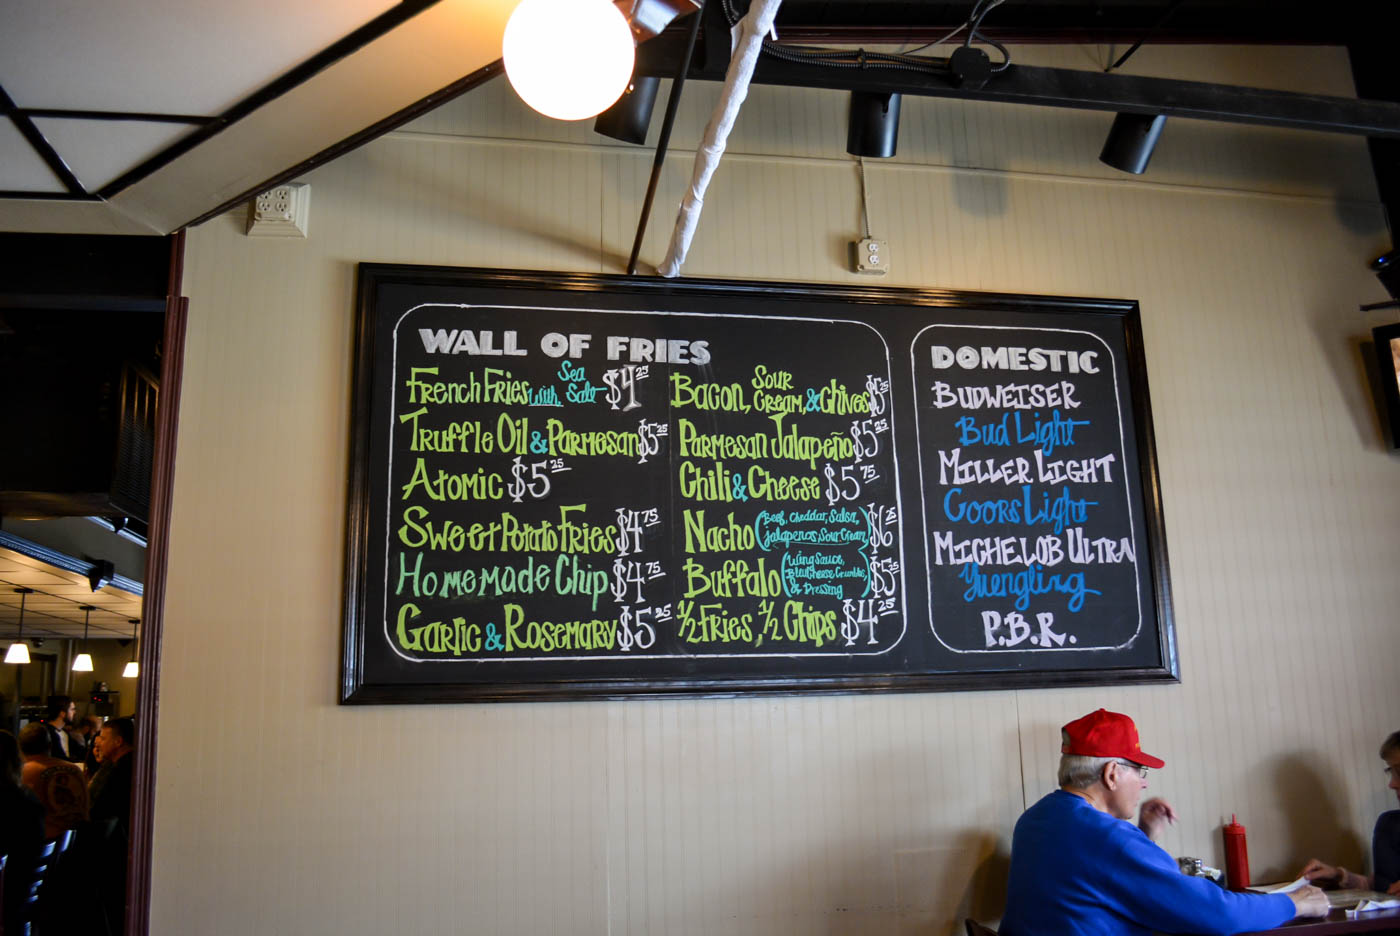 WALL OF FRIES
French Fries with Sea Salt $4.25
Truffle Oil & Parmesan $5.25
Atomic $5.25
Sweet Potato Fries $4.75
Homemade Chip $4.75
Garlic & Rosemary $5.25
Bacon, Sour Cream, & Chives $5.25
Parmesan Jalapeño $5.25
Chili & Cheese $5.75
Nacho (Beef, Cheddar, Salsa, Jalapenos, Sour Cream) $6.25
Buffalo (Wing Sauce, Bleu Cheese Crumbles, & Dressing) $5.25
1/2 Fries, 1/2 Chips $4.25
DOMESTIC
BUDWEISER
Bud Light
MILLER LIGHT
COORS Light
MICHELOB ULTRA
Yuengling
P.B.R.